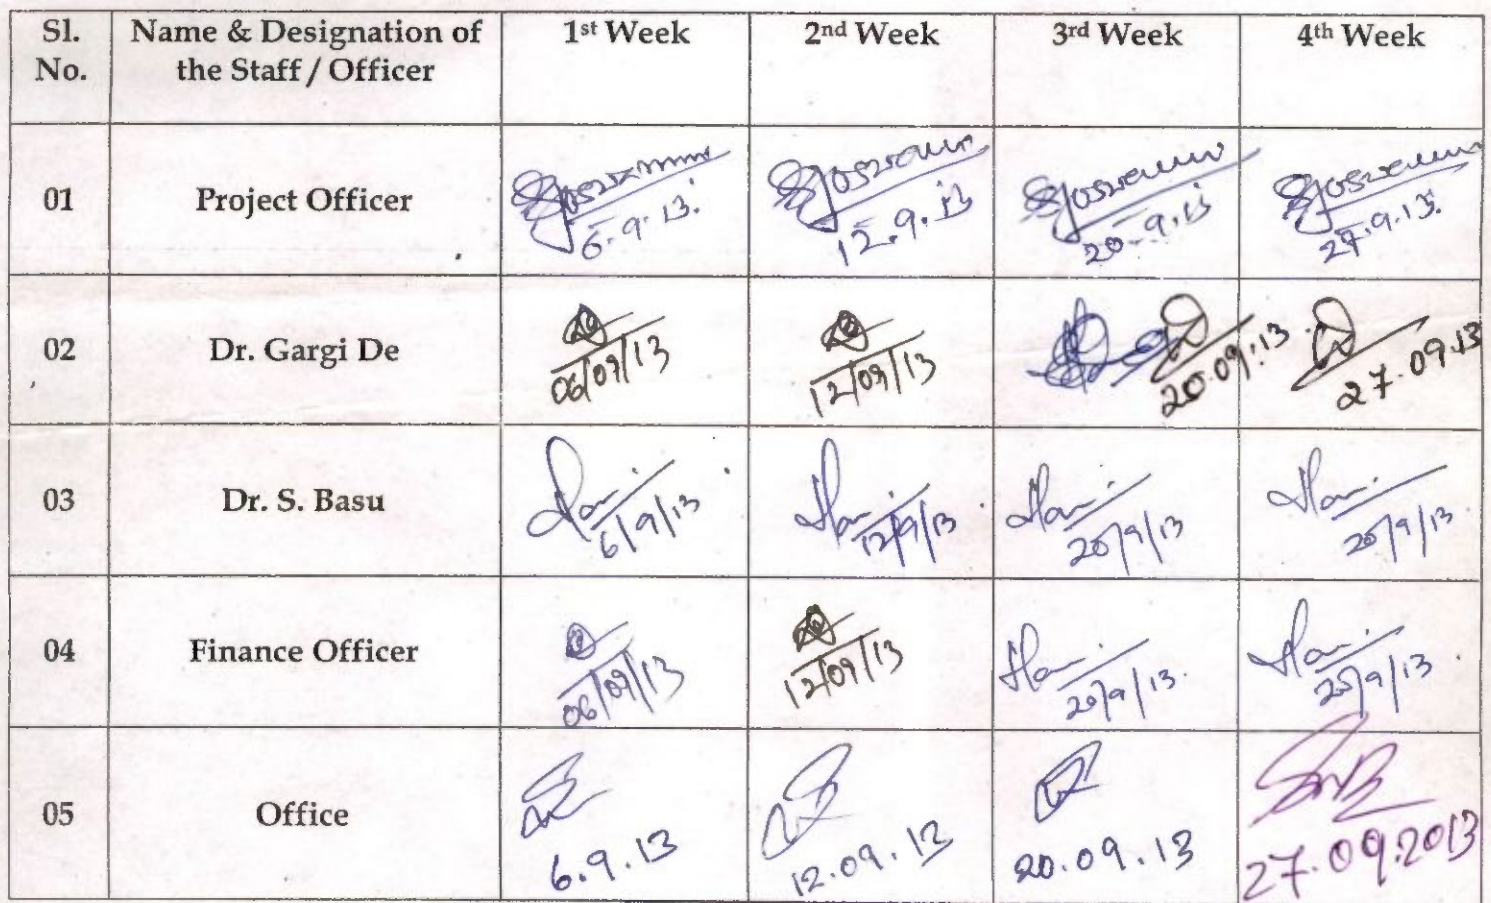 Sl. No. Name & Designation of the Staff / Officer 1st Week 2nd Week 3rd Week 4th Week
01 Project Officer Goswami 6.9.13. Goswami 12.9.13 Goswami 20.9.13 Goswami 27.9.13.
02 Dr. Gargi De 06/09/13 12/09/13 20.09.13 27.09.13
03 Dr. S. Basu 6/9/13 12/9/13 20/9/13
04 Finance Officer 06/09/13 12/09/13 20/9/13.
05 Office 6.9.13 12.09.13 20.09.13 27.09.2013